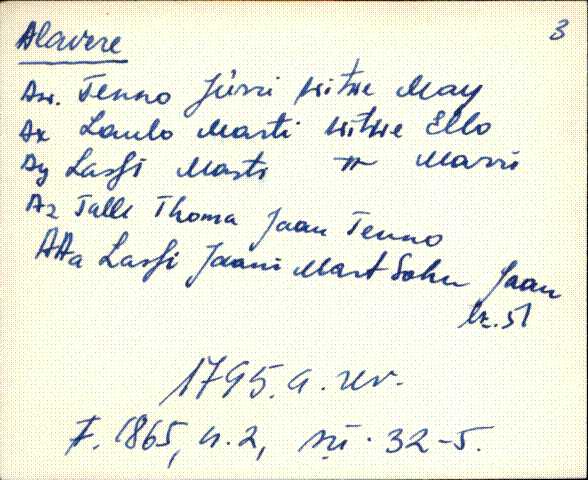 3
Alavere
Aw. Tenno Jürri witwe May
Ax Laulo Marti witwe Ello
Ay Lassi Marti —"— Marri
Az Talli Thoma Jaan Tenno
AAa Lassi Jaani Mart Sohn Jaan
lk. 51
1795. a. rev.
F. 1865, n. 2, sü. 32-5.